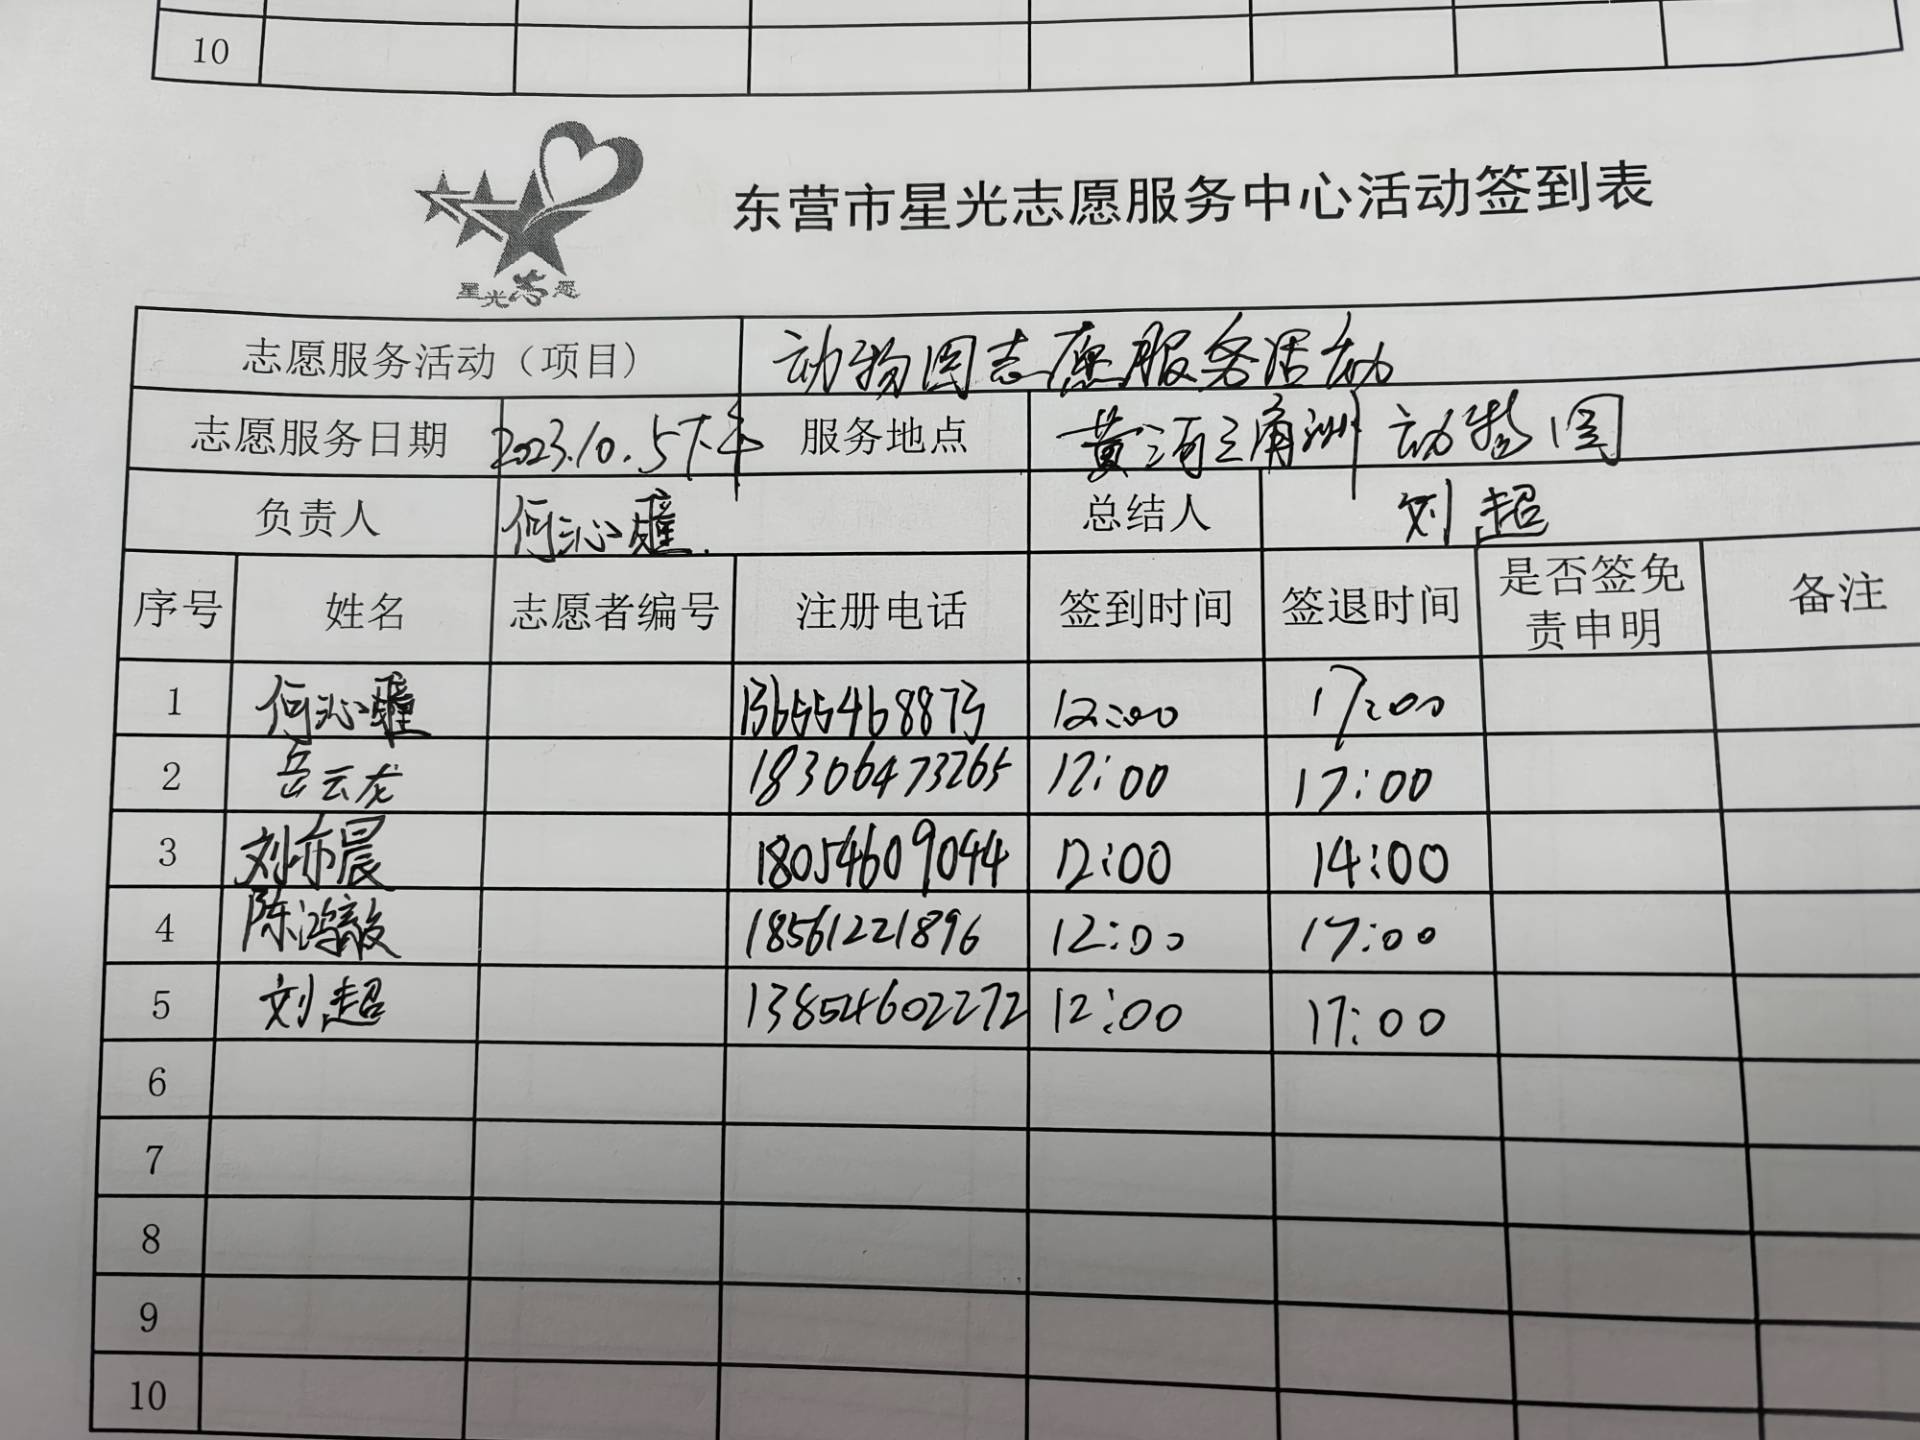 10
星光志愿
东营市星光志愿服务中心活动签到表
志愿服务活动（项目） 动物园志愿服务活动
志愿服务日期 2023.10.5下午 服务地点 黄河三角洲动物园
负责人 何沁 总结人 刘超
序号 姓名 志愿者编号 注册电话 签到时间 签退时间 是否签免责申明 备注
1 何沁 13655468873 12:00 17:00
2 岳云龙 18306473265 12:00 17:00
3 刘亦晨 18054609044 12:00 14:00
4 陈鸿毅 18561221896 12:00 17:00
5 刘超 13854602272 12:00 17:00
6
7
8
9
10